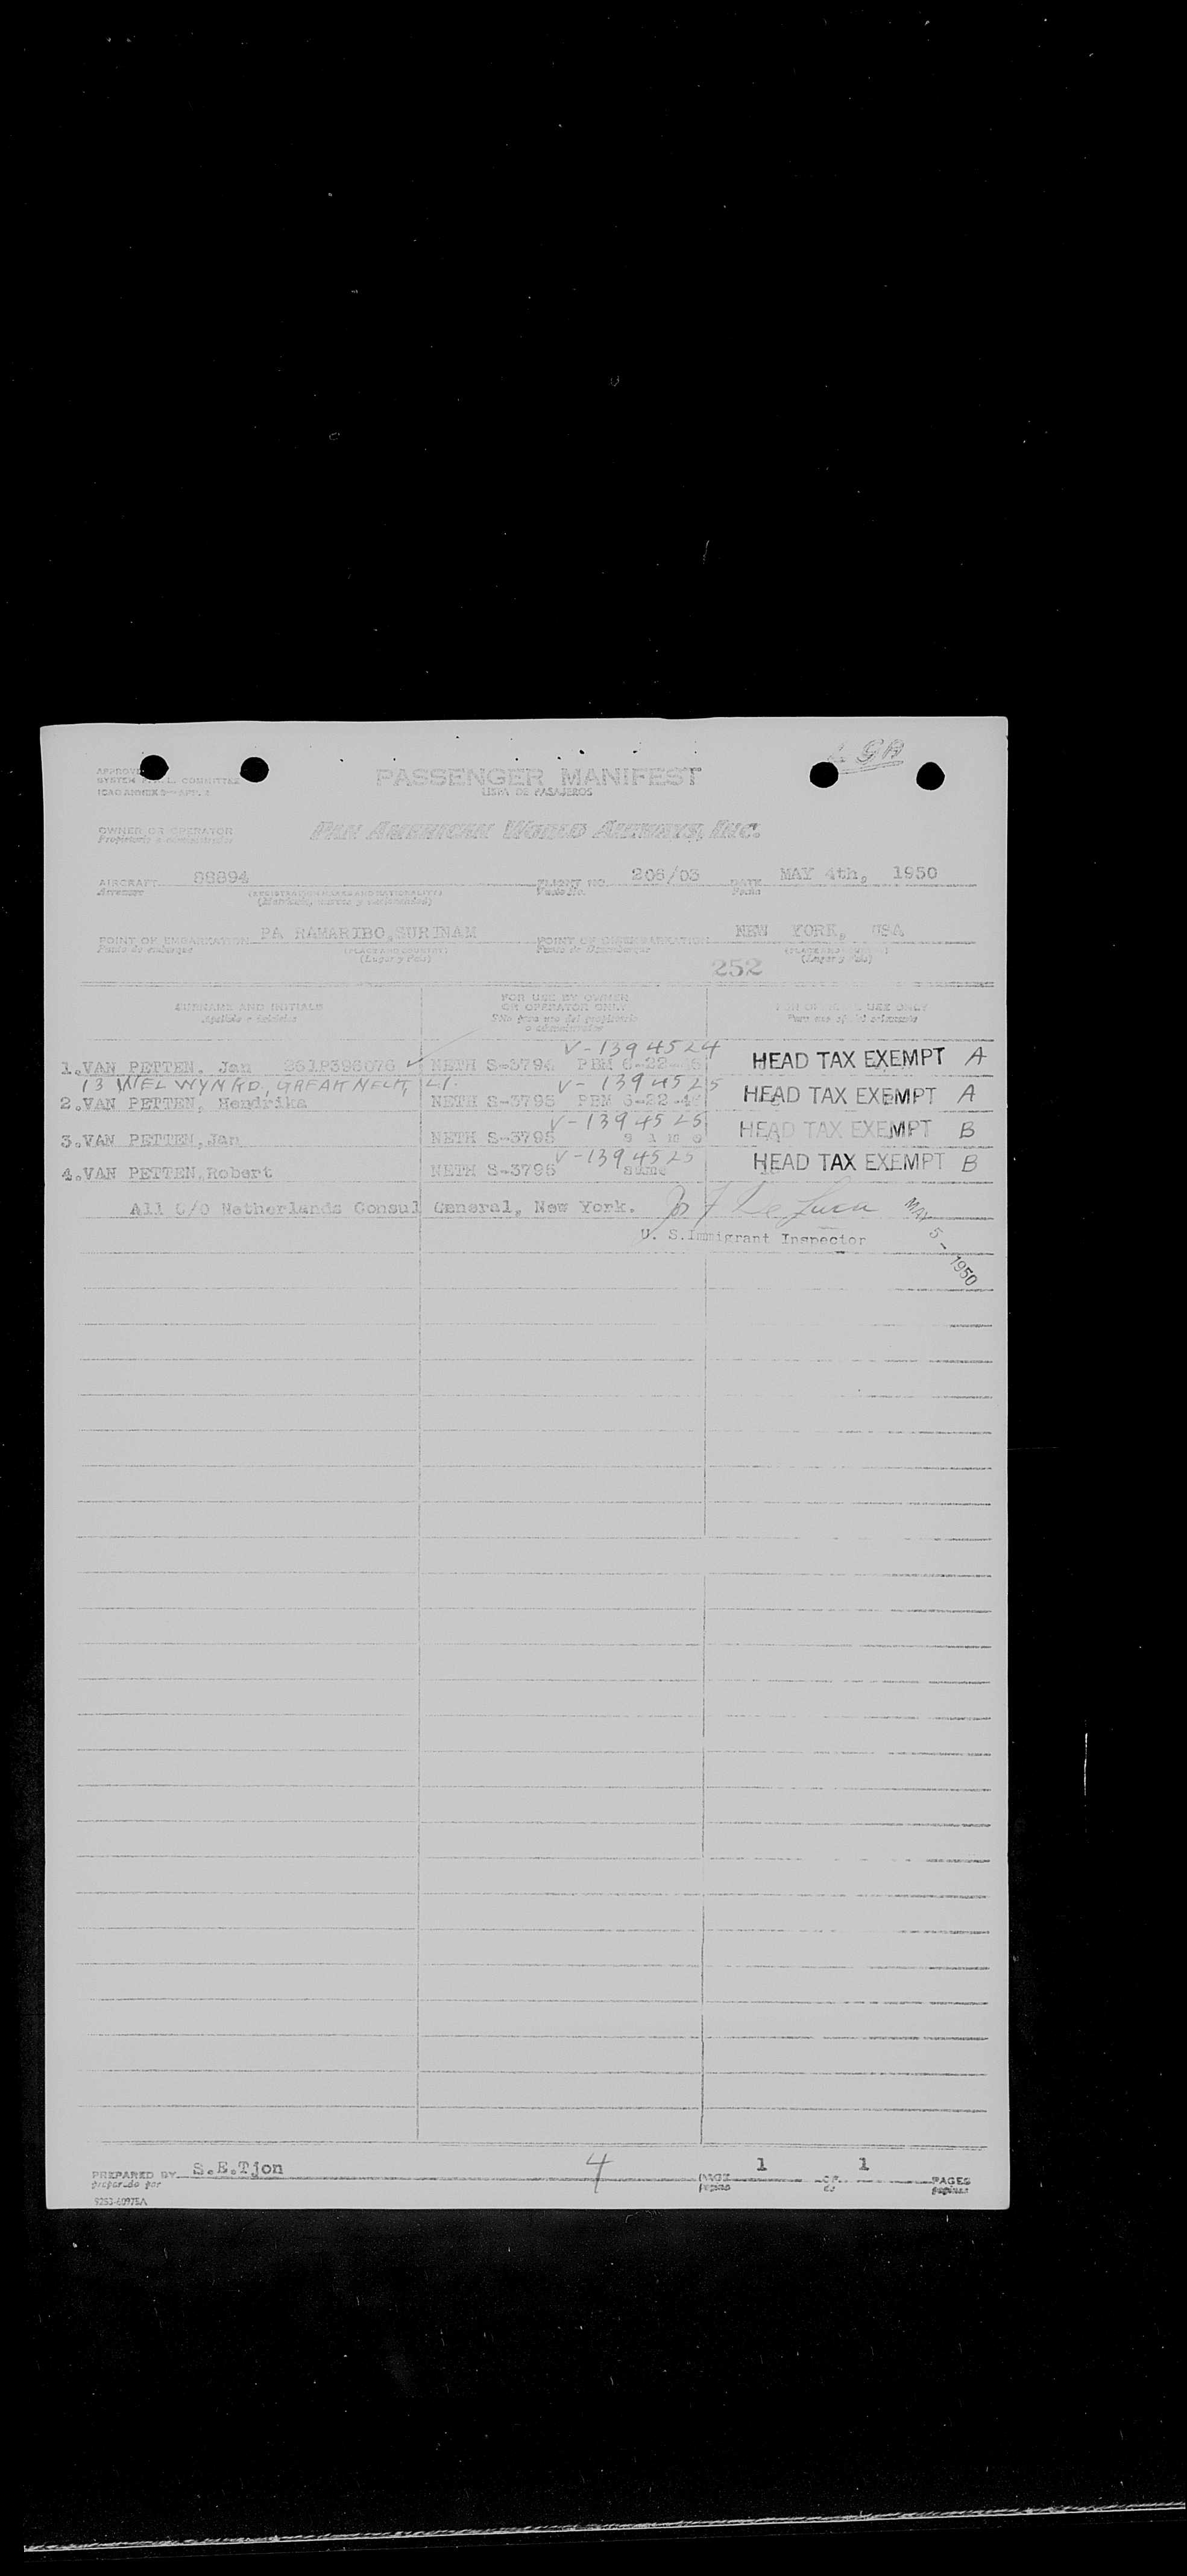 4 GB
APPROVED
SYSTEM F.A.L. COMMITTEE
ICAO ANNEX 9
PASSENGER MANIFEST
LISTA DE PASAJEROS
OWNER OR OPERATOR PAN AMERICAN WORLD AIRWAYS, INC.
Propietario o administrador
AIRCRAFT 88894 FLIGHT NO. 206/03 DATE MAY 4th, 1950
Aeronave (REGISTRATION MARKS AND NATIONALITY) Vuelo No. Fecha
(Matrícula, marcas y nacionalidad)
POINT OF EMBARKATION PA RAMARIBO,SURINAM POINT OF DISEMBARKATION NEW YORK, USA
Punto de embarque (PLACE AND COUNTRY) Punto de Desembarque (PLACE AND COUNTRY)
(Lugar y País) (Lugar y País)
252
SURNAME AND INITIALS FOR USE BY OWNER OR OPERATOR ONLY FOR OFFICIAL USE ONLY
Apellido e iniciales Sólo para uso del propietario o administrador Para uso oficial solamente
V-1394524
1.VAN PETTEN, Jan 261P396076 ✓ NETH S-3794 PBM 6-22-46 HEAD TAX EXEMPT A
13 WELWYN RD, GREAT NECK, L.I. V-1394525
2.VAN PETTEN, Hendrika NETH S-3795 PBM 6-22-4 HEAD TAX EXEMPT A
V-1394525
3.VAN PETTEN,Jan NETH S-3795 HEAD TAX EXEMPT B
V-1394525
4.VAN PETTEN,Robert NETH S-3795 same HEAD TAX EXEMPT B
All C/O Netherlands Consul General, New York. Jos F De Luca
U. S.Immigrant Inspector
MAY 5 - 1950
PREPARED BY S.E.Tjon 4 PAGE 1 OF 1 PAGES
preparado por página de páginas
9263-60975A